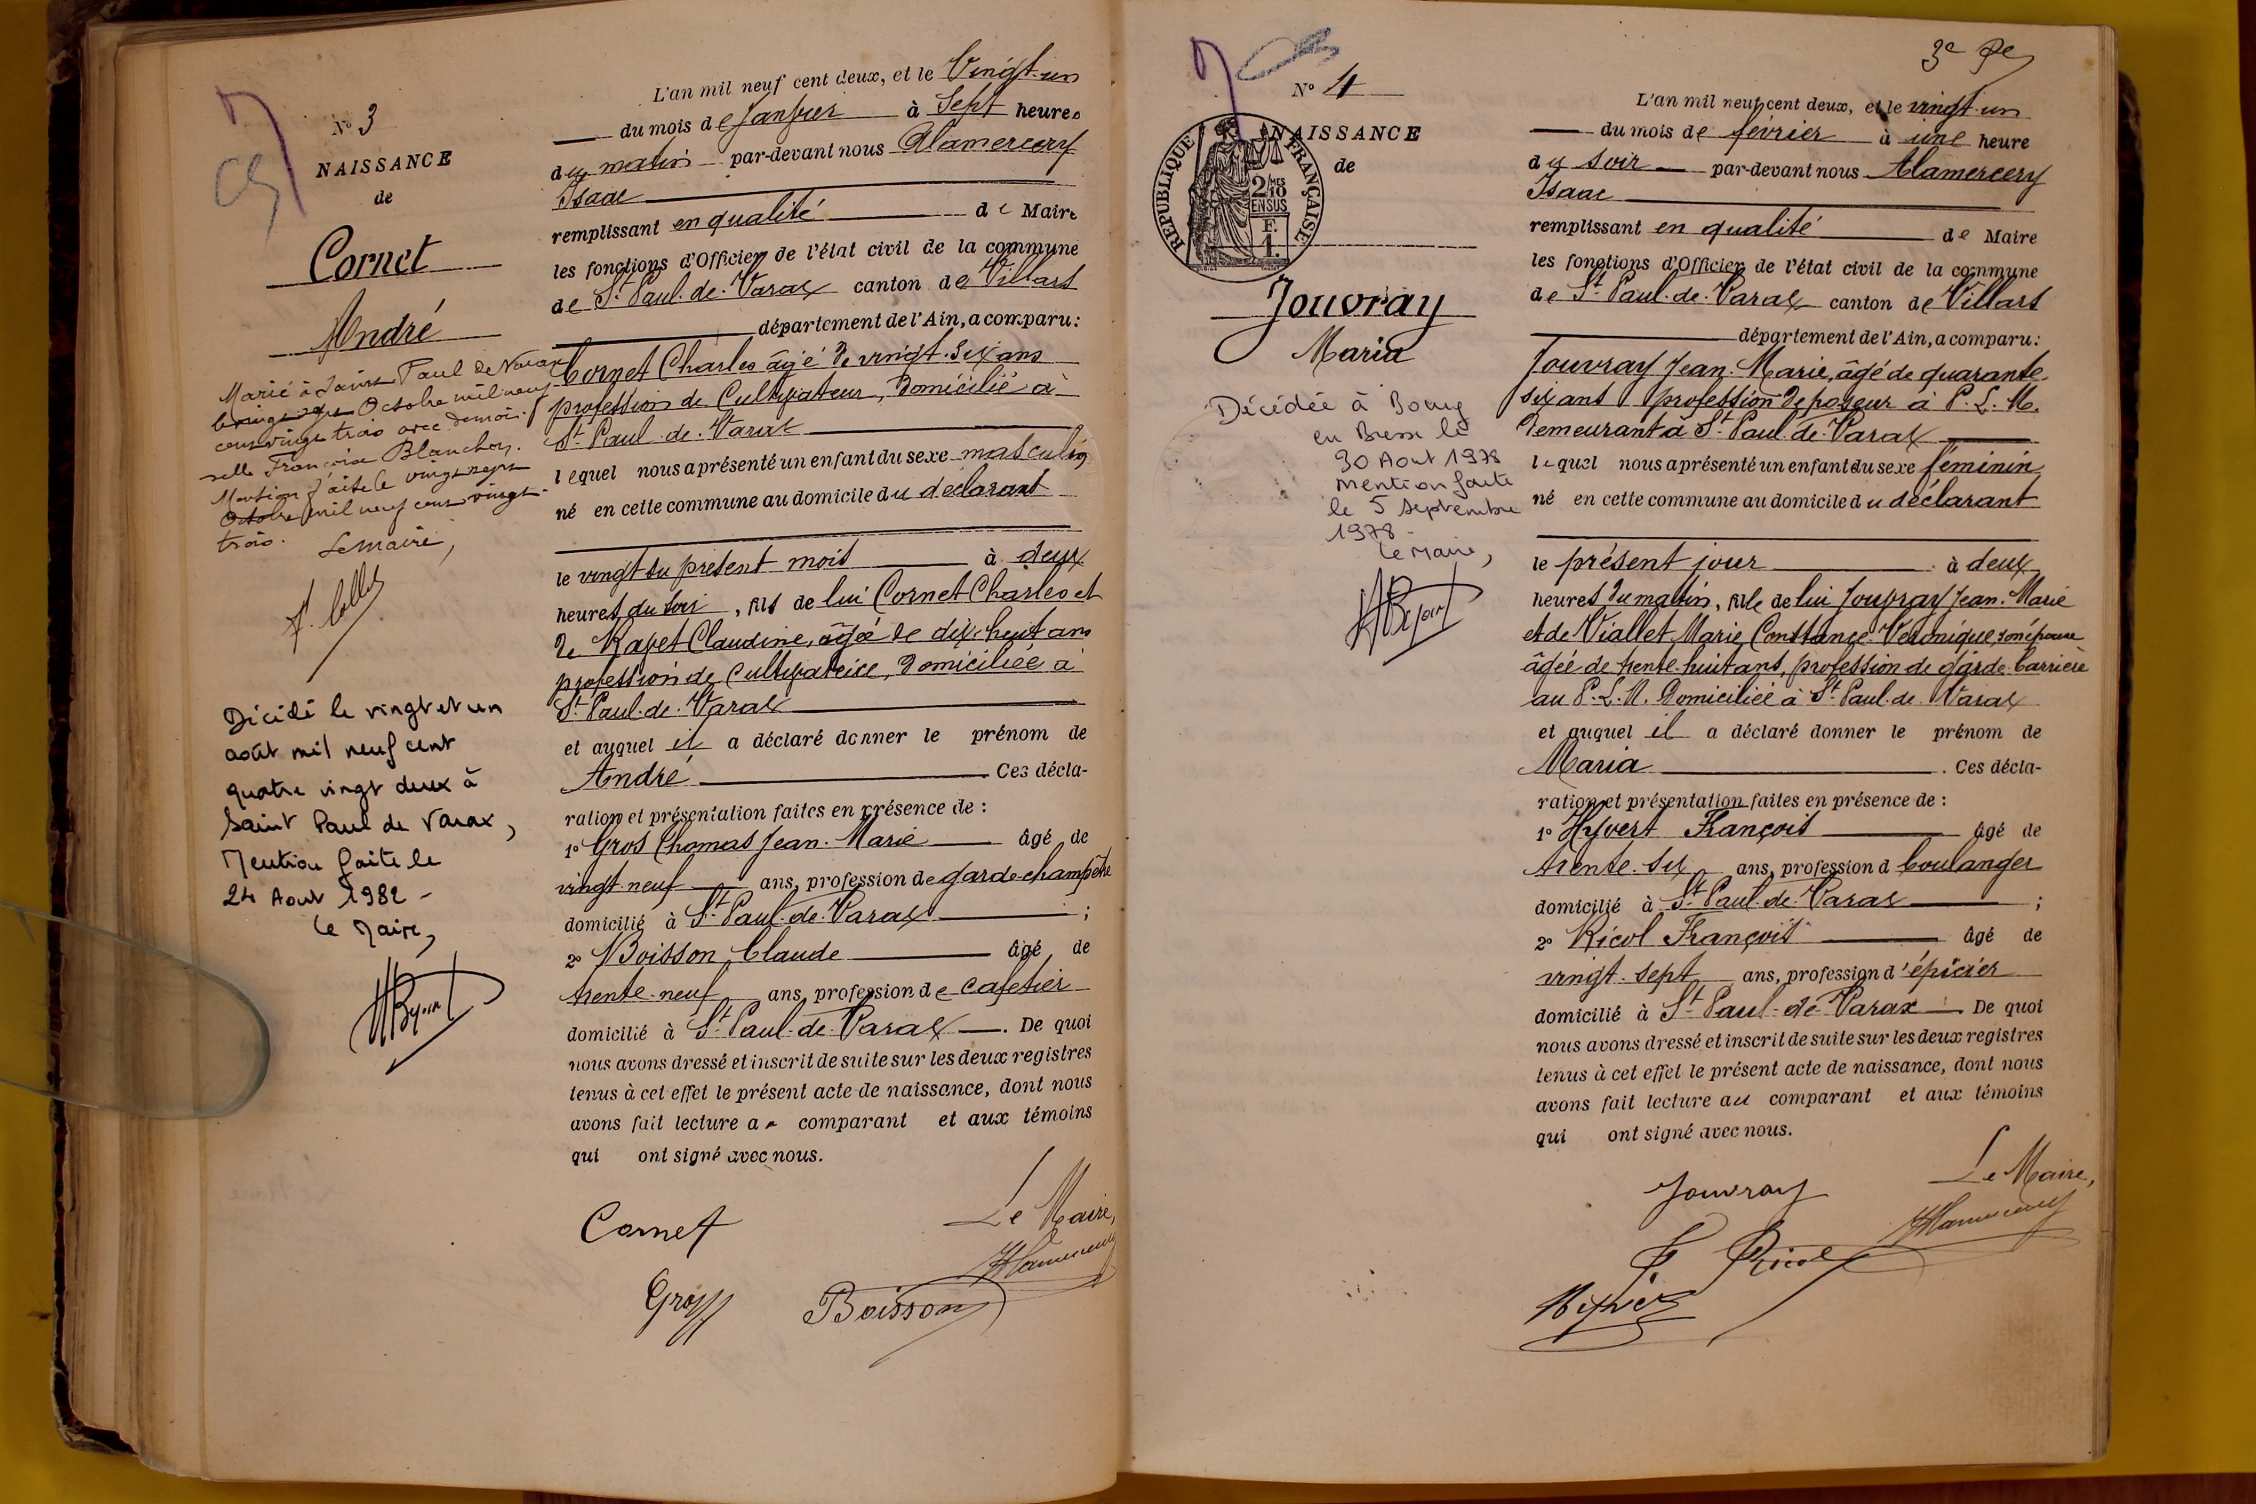 N° 3
NAISSANCE
de
Cornet
André
Marié à Saint Paul de Varax
le vingt Octobre mil neuf
cent vingt trois avec demoi-
selle Françoise Blanchon.
Mention faite le vingt sept
Octobre mil neuf cent vingt
trois.
Le Maire,
Décédé le vingt et un
août mil neuf cent
quatre vingt deux à
Saint Paul de Varax,
Mention faite le
24 Aout 1982 -
Le Maire,
L'an mil neuf cent deux, et le Vingt-un
du mois de Janvier à Sept heures
du matin par-devant nous Alamercery
Isaac
remplissant en qualité de Maire
les fonctions d'Officier de l'état civil de la commune
de St Paul-de-Varax canton de Villars
département de l'Ain, a comparu:
Cornet Charles âgé de vingt-six ans
profession de Cultivateur, Domicilié à
St Paul-de-Varax
lequel nous a présenté un enfant du sexe masculin
né en cette commune au domicile du déclarant
le vingt du présent mois à deux
heures du soir, fils de lui Cornet Charles et
de Rapet Claudine, âgée de dix-huit ans
profession de Cultivatrice, Domiciliée à
St Paul-de-Varax
et auquel il a déclaré donner le prénom de
André Ces décla-
ration et présentation faites en présence de :
1° Gros Thomas Jean-Marie âgé de
vingt-neuf ans, profession de garde-champêtre
domicilié à St Paul-de-Varax ;
2° Boisson Claude âgé de
trente-neuf ans, profession de cafetier
domicilié à St Paul-de-Varax. De quoi
nous avons dressé et inscrit de suite sur les deux registres
tenus à cet effet le présent acte de naissance, dont nous
avons fait lecture au comparant et aux témoins
qui ont signé avec nous.
Cornet
Le Maire,
Alamercery
Gros
Boisson
3e
N° 4
NAISSANCE
de
REPUBLIQUE FRANÇAISE
2/10 MES
EN SUS
F.
1.
Jouvray
Maria
Décédée à Bourg
en Bresse le
30 Aout 1978
mention faite
le 5 septembre
1978.
Le Maire,
L'an mil neuf cent deux, et le vingt-un
du mois de février à une heure
du soir par-devant nous Alamercery
Isaac
remplissant en qualité de Maire
les fonctions d'Officier de l'état civil de la commune
de St Paul-de-Varax canton de Villars
département de l'Ain, a comparu:
Jouvray Jean-Marie, âgé de quarante-
six ans profession de poseur à P.L.M.
Demeurant à St Paul-de-Varax
lequel nous a présenté un enfant du sexe féminin
né en cette commune au domicile du déclarant
le présent jour à deux
heures du matin, fille de lui Jouvray Jean-Marie
et de Viallet Marie Constance Véronique, son épouse
âgée de trente-huit ans, profession de garde-barrière
au P.L.M. Domiciliée à St Paul-de-Varax
et auquel il a déclaré donner le prénom de
Maria. Ces décla-
ration et présentation faites en présence de :
1° Hyvert François âgé de
trente-six ans, profession d boulanger
domicilié à St Paul-de-Varax ;
2° Ricol François âgé de
vingt-sept ans, profession d'épicier
domicilié à St Paul-de-Varax De quoi
nous avons dressé et inscrit de suite sur les deux registres
tenus à cet effet le présent acte de naissance, dont nous
avons fait lecture au comparant et aux témoins
qui ont signé avec nous.
Jouvray
Le Maire,
Alamercery
F. Ricol
Hyvert